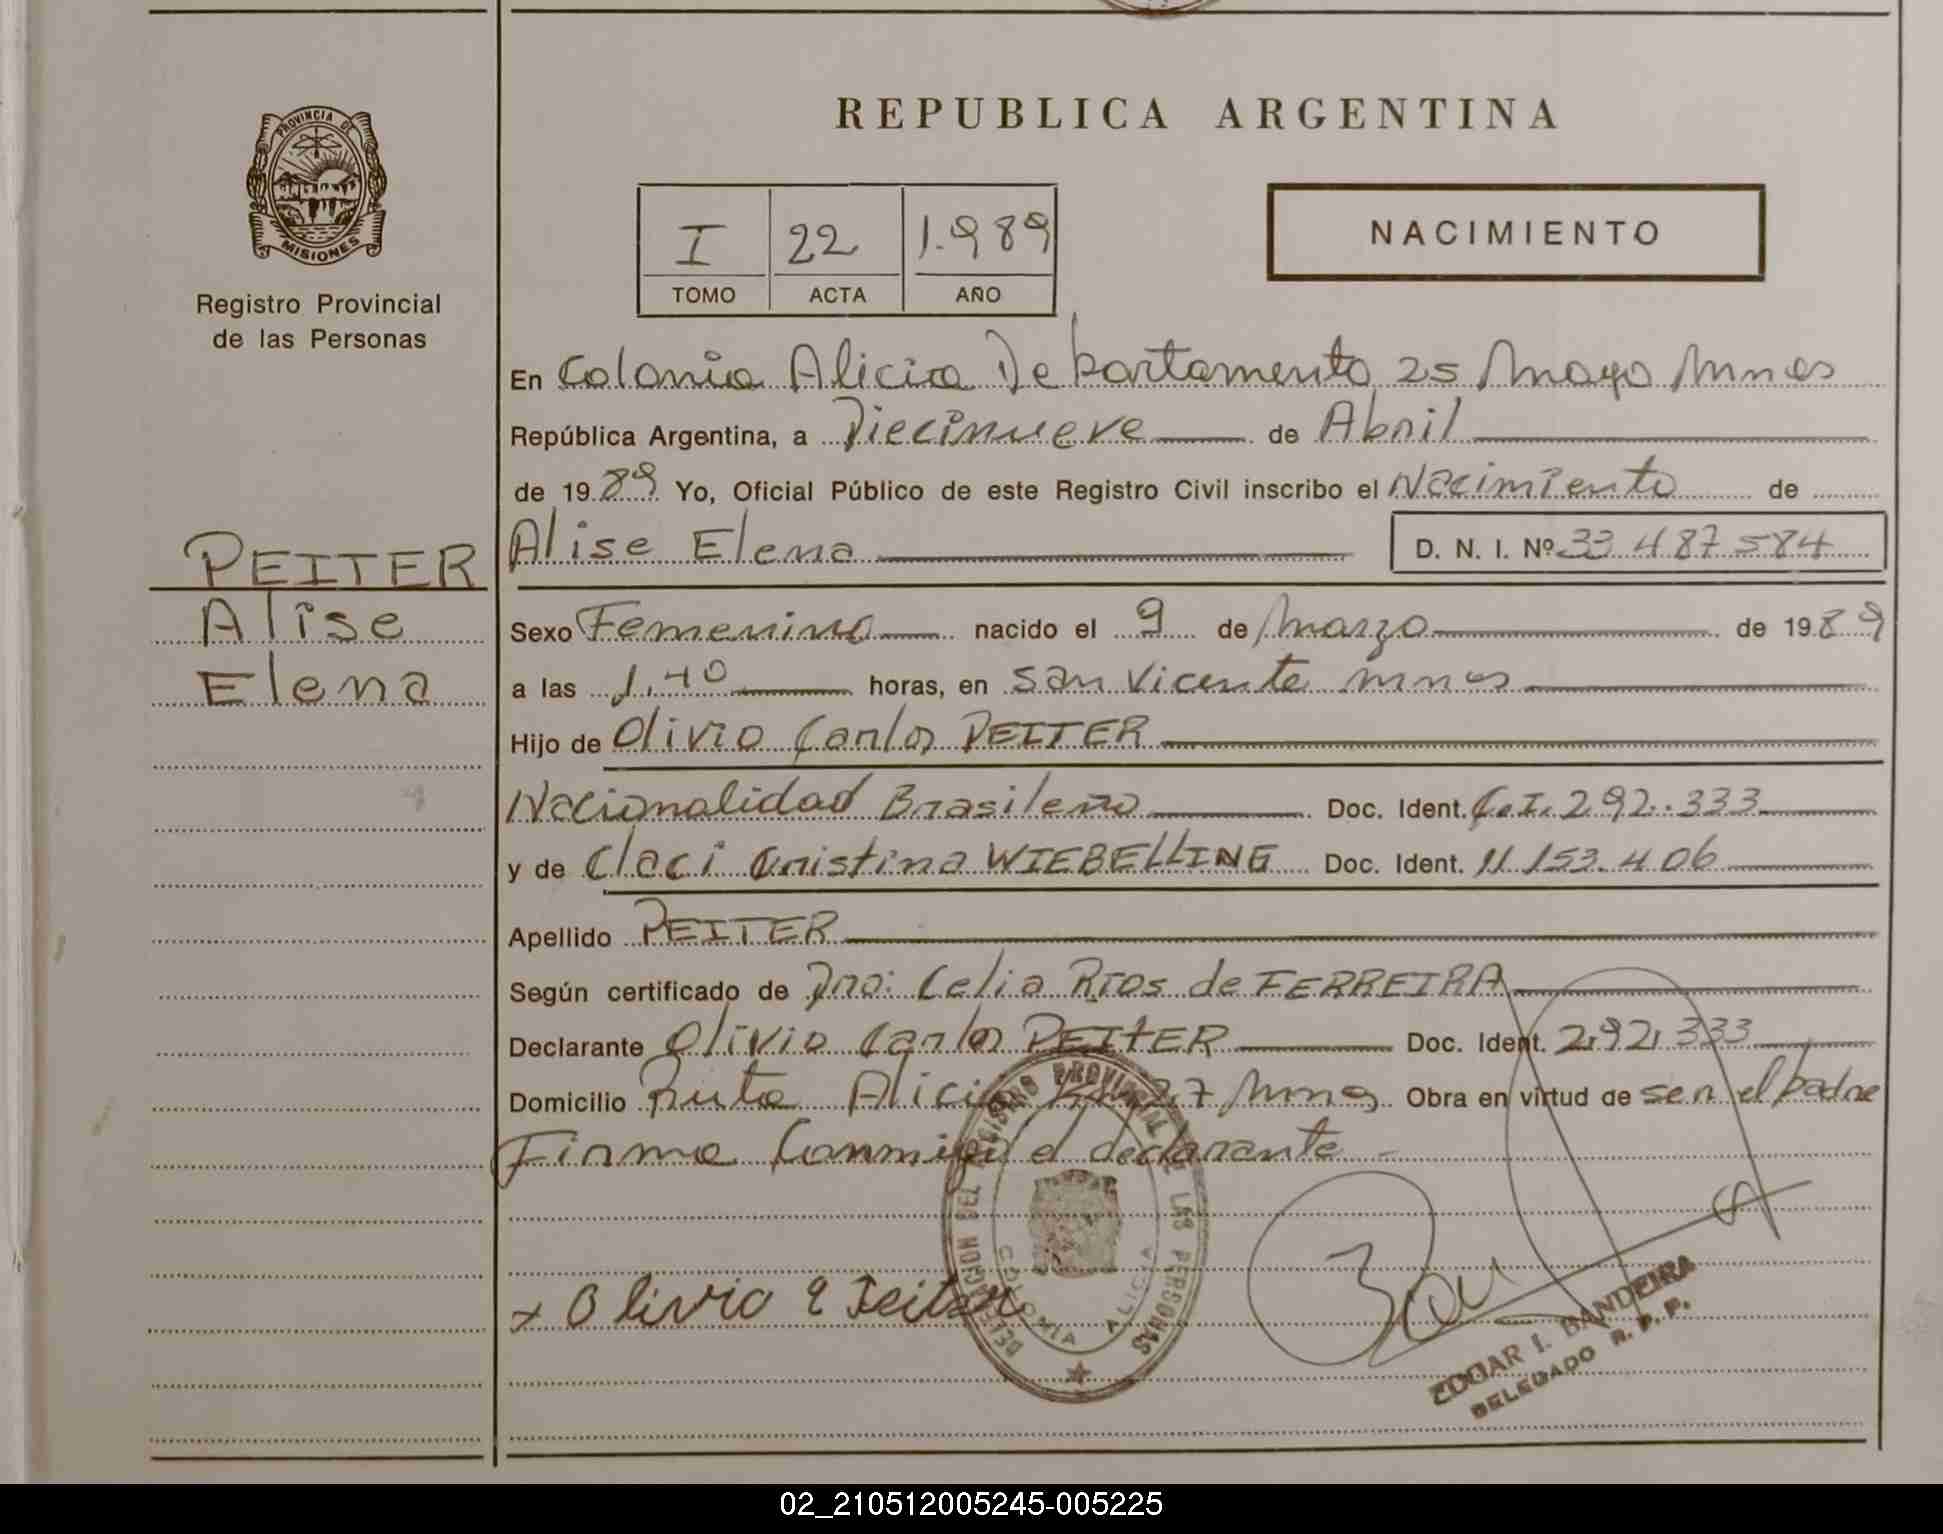 PROVINCIA DE
MISIONES
Registro Provincial
de las Personas
REPUBLICA ARGENTINA
I 22 1.989
TOMO ACTA AÑO
NACIMIENTO
En Colonia Alicia Departamento 25 Mayo Mnes
República Argentina, a Diecinueve de Abril
de 1989 Yo, Oficial Público de este Registro Civil inscribo el Nacimiento de
Alise Elena D. N. I. Nº 33 487 584
PEITER
Alise
Elena
Sexo Femenino nacido el 9 de Marzo de 1989
a las 1.40 horas, en San Vicente mnes
Hijo de Olivio Carlos PEITER
Nacionalidad Brasileño Doc. Ident. C.I. 292.333
y de Claci Cristina WIEBELLING Doc. Ident. 11.153.406
Apellido PEITER
Según certificado de Dra: Celia RIOS de FERREIRA
Declarante Olivio Carlos PEITER Doc. Ident. 292.333
Domicilio Ruta Alicia Km 27 Mnes Obra en virtud de ser el padre
Firma Conmigo el declarante -
DELEGACION DEL REGISTRO PROVINCIAL DE LAS PERSONAS
COLONIA ALICIA
x Olivio C Peiter
EDGAR I. BANDEIRA
DELEGADO R. P. P.
02_210512005245-005225